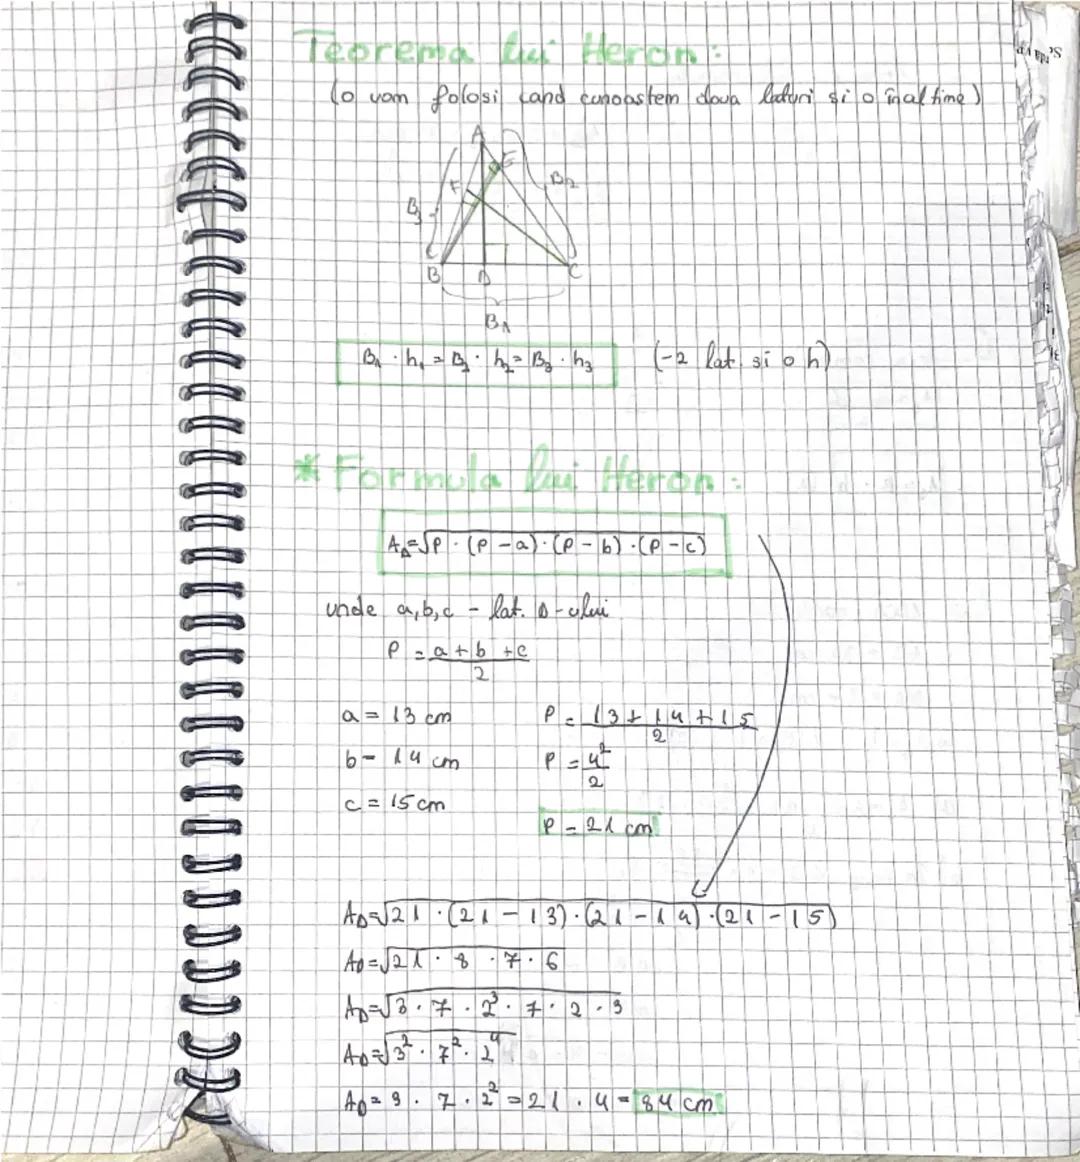 Teorema lui Heron:
(o vom folosi cand cunoastem doua laturi si o inaltime)
A
E
F
B₂
B₃
B
D
C
B₁
B₁ · h₁ = B₂ · h₂ = B₃ · h₃ (-2 lat. si o h)
* Formula lui Heron:
A△=√p · (p - a) · (p - b) · (p - c)
unde a, b, c - lat. △-ului
P = a + b + c
2
a = 13 cm P = 13 + 14 + 15
2
b = 14 cm P = 42
2
c = 15 cm
P = 21 cm
A△=√21 · (21 - 13) · (21 - 14) · (21 - 15)
A△=√21 · 8 · 7 · 6
A△=√3 · 7 · 2³ · 7 · 2 · 3
A△=√3² · 7² · 2⁴
A△ = 3 · 7 · 2² = 21 · 4 = 84 cm